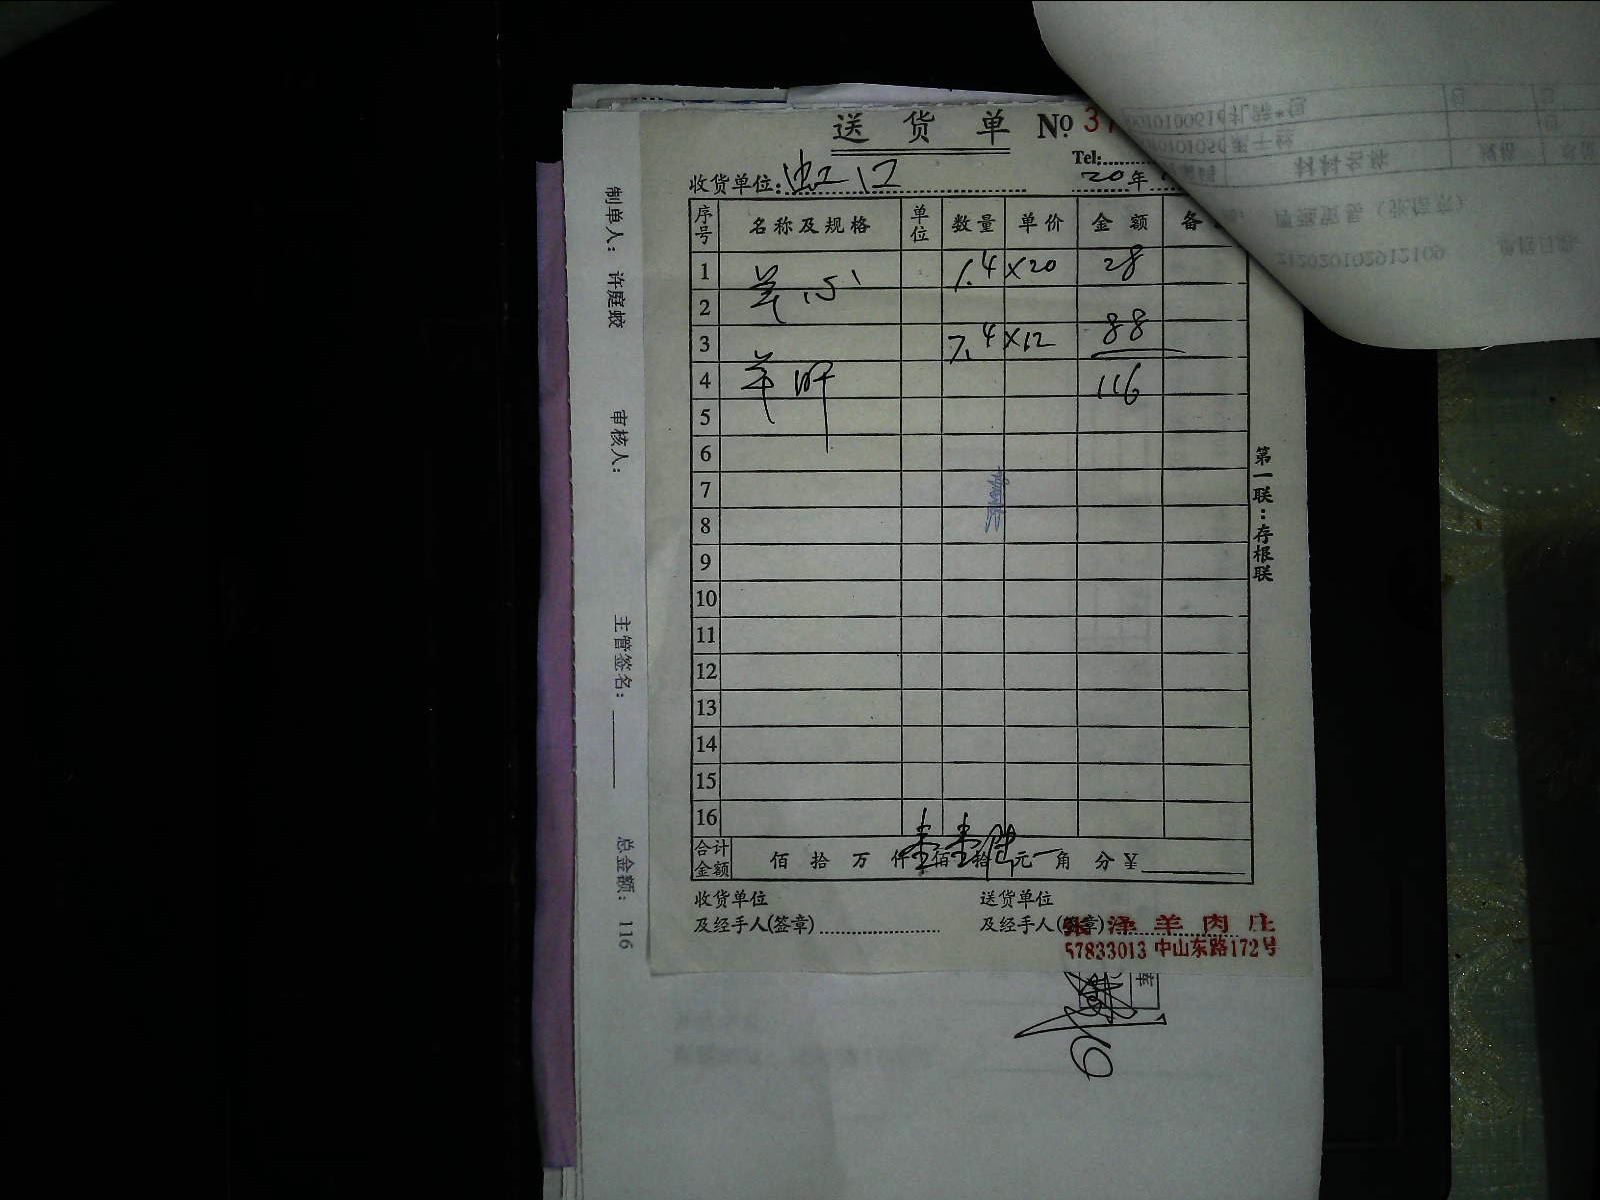 送 货 单 № 37
Tel:
收货单位: 虹口 20年
序号 名称及规格 单位 数量 单价 金额 备
1 羊心 1.4×20 28
2
3 7.4×12 88
4 羊肝 116
5
6
7
8
9
10
11
12
13
14
15
16
合计金额 佰 拾 万 仟壹佰壹拾陆元一角 分 ¥
收货单位 送货单位
及经手人(签章) 及经手人(签章)
张泽羊肉庄
57833013 中山东路172号
第一联:存根联
制单人: 许庭蛟 审核人: 主管签名: 总金额: 116